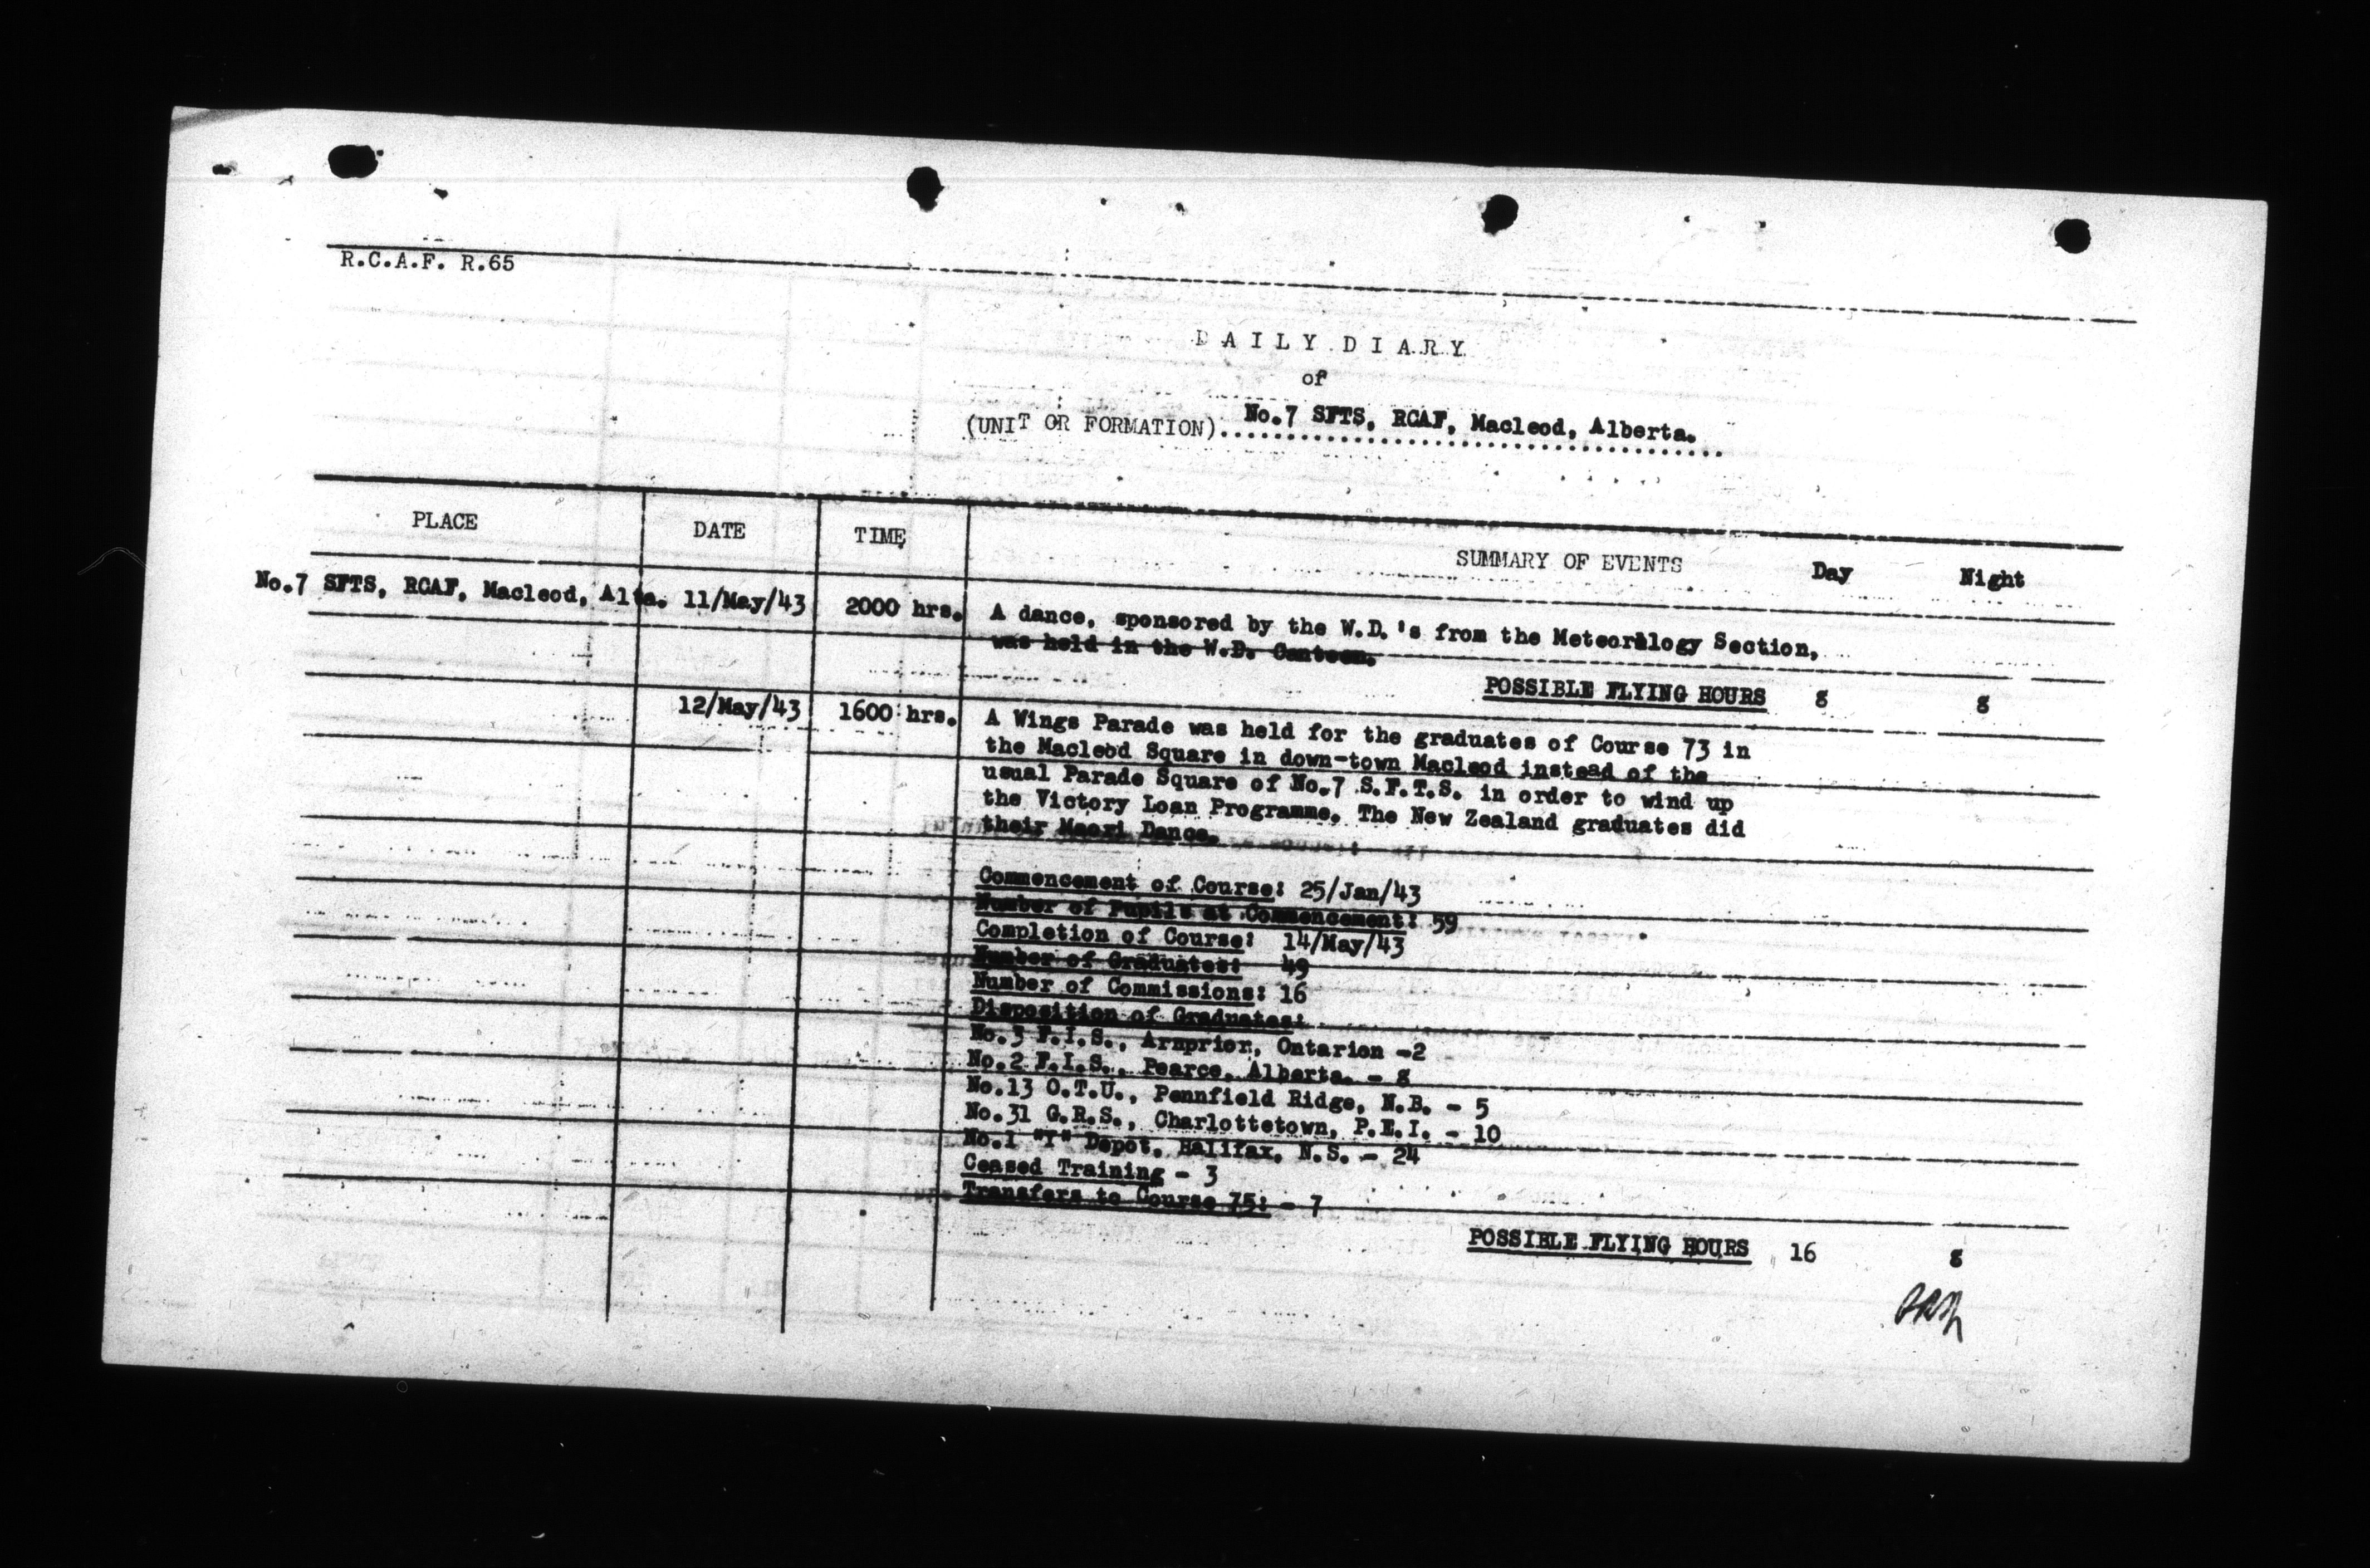 R.C.A.F. R.65
DAILY DIARY
of
(UNIT OR FORMATION)..No.7 SFTS, RCAF, Macleod, Alberta.
PLACE DATE TIME SUMMARY OF EVENTS Day Night
No.7 SFTS, RCAF, Macleod, Alta. 11/May/43 2000 hrs. A dance, sponsored by the W.D.'s from the Meteorology Section,
was held in the W.D. Canteen.
POSSIBLE FLYING HOURS 8 8
12/May/43 1600 hrs. A Wings Parade was held for the graduates of Course 73 in
the Macleod Square in down-town Macleod instead of the
usual Parade Square of No.7 S.F.T.S. in order to wind up
the Victory Loan Programme. The New Zealand graduates did
their Maori Dance.
Commencement of Course: 25/Jan/43
Number of Pupils at Commencement: 59
Completion of Course: 14/May/43
Number of Graduates: 49
Number of Commissions: 16
Disposition of Graduates:
No.3 F.I.S., Arnprior, Ontarion -2
No.2 F.I.S., Pearce, Alberta. - 8
No.13 O.T.U., Pennfield Ridge, N.B. - 5
No.31 G.R.S., Charlottetown, P.E.I. - 10
No.1 "Y" Depot, Halifax, N.S. - 24
Ceased Training - 3
Transfers to Course 75: - 7
POSSIBLE FLYING HOURS 16 8